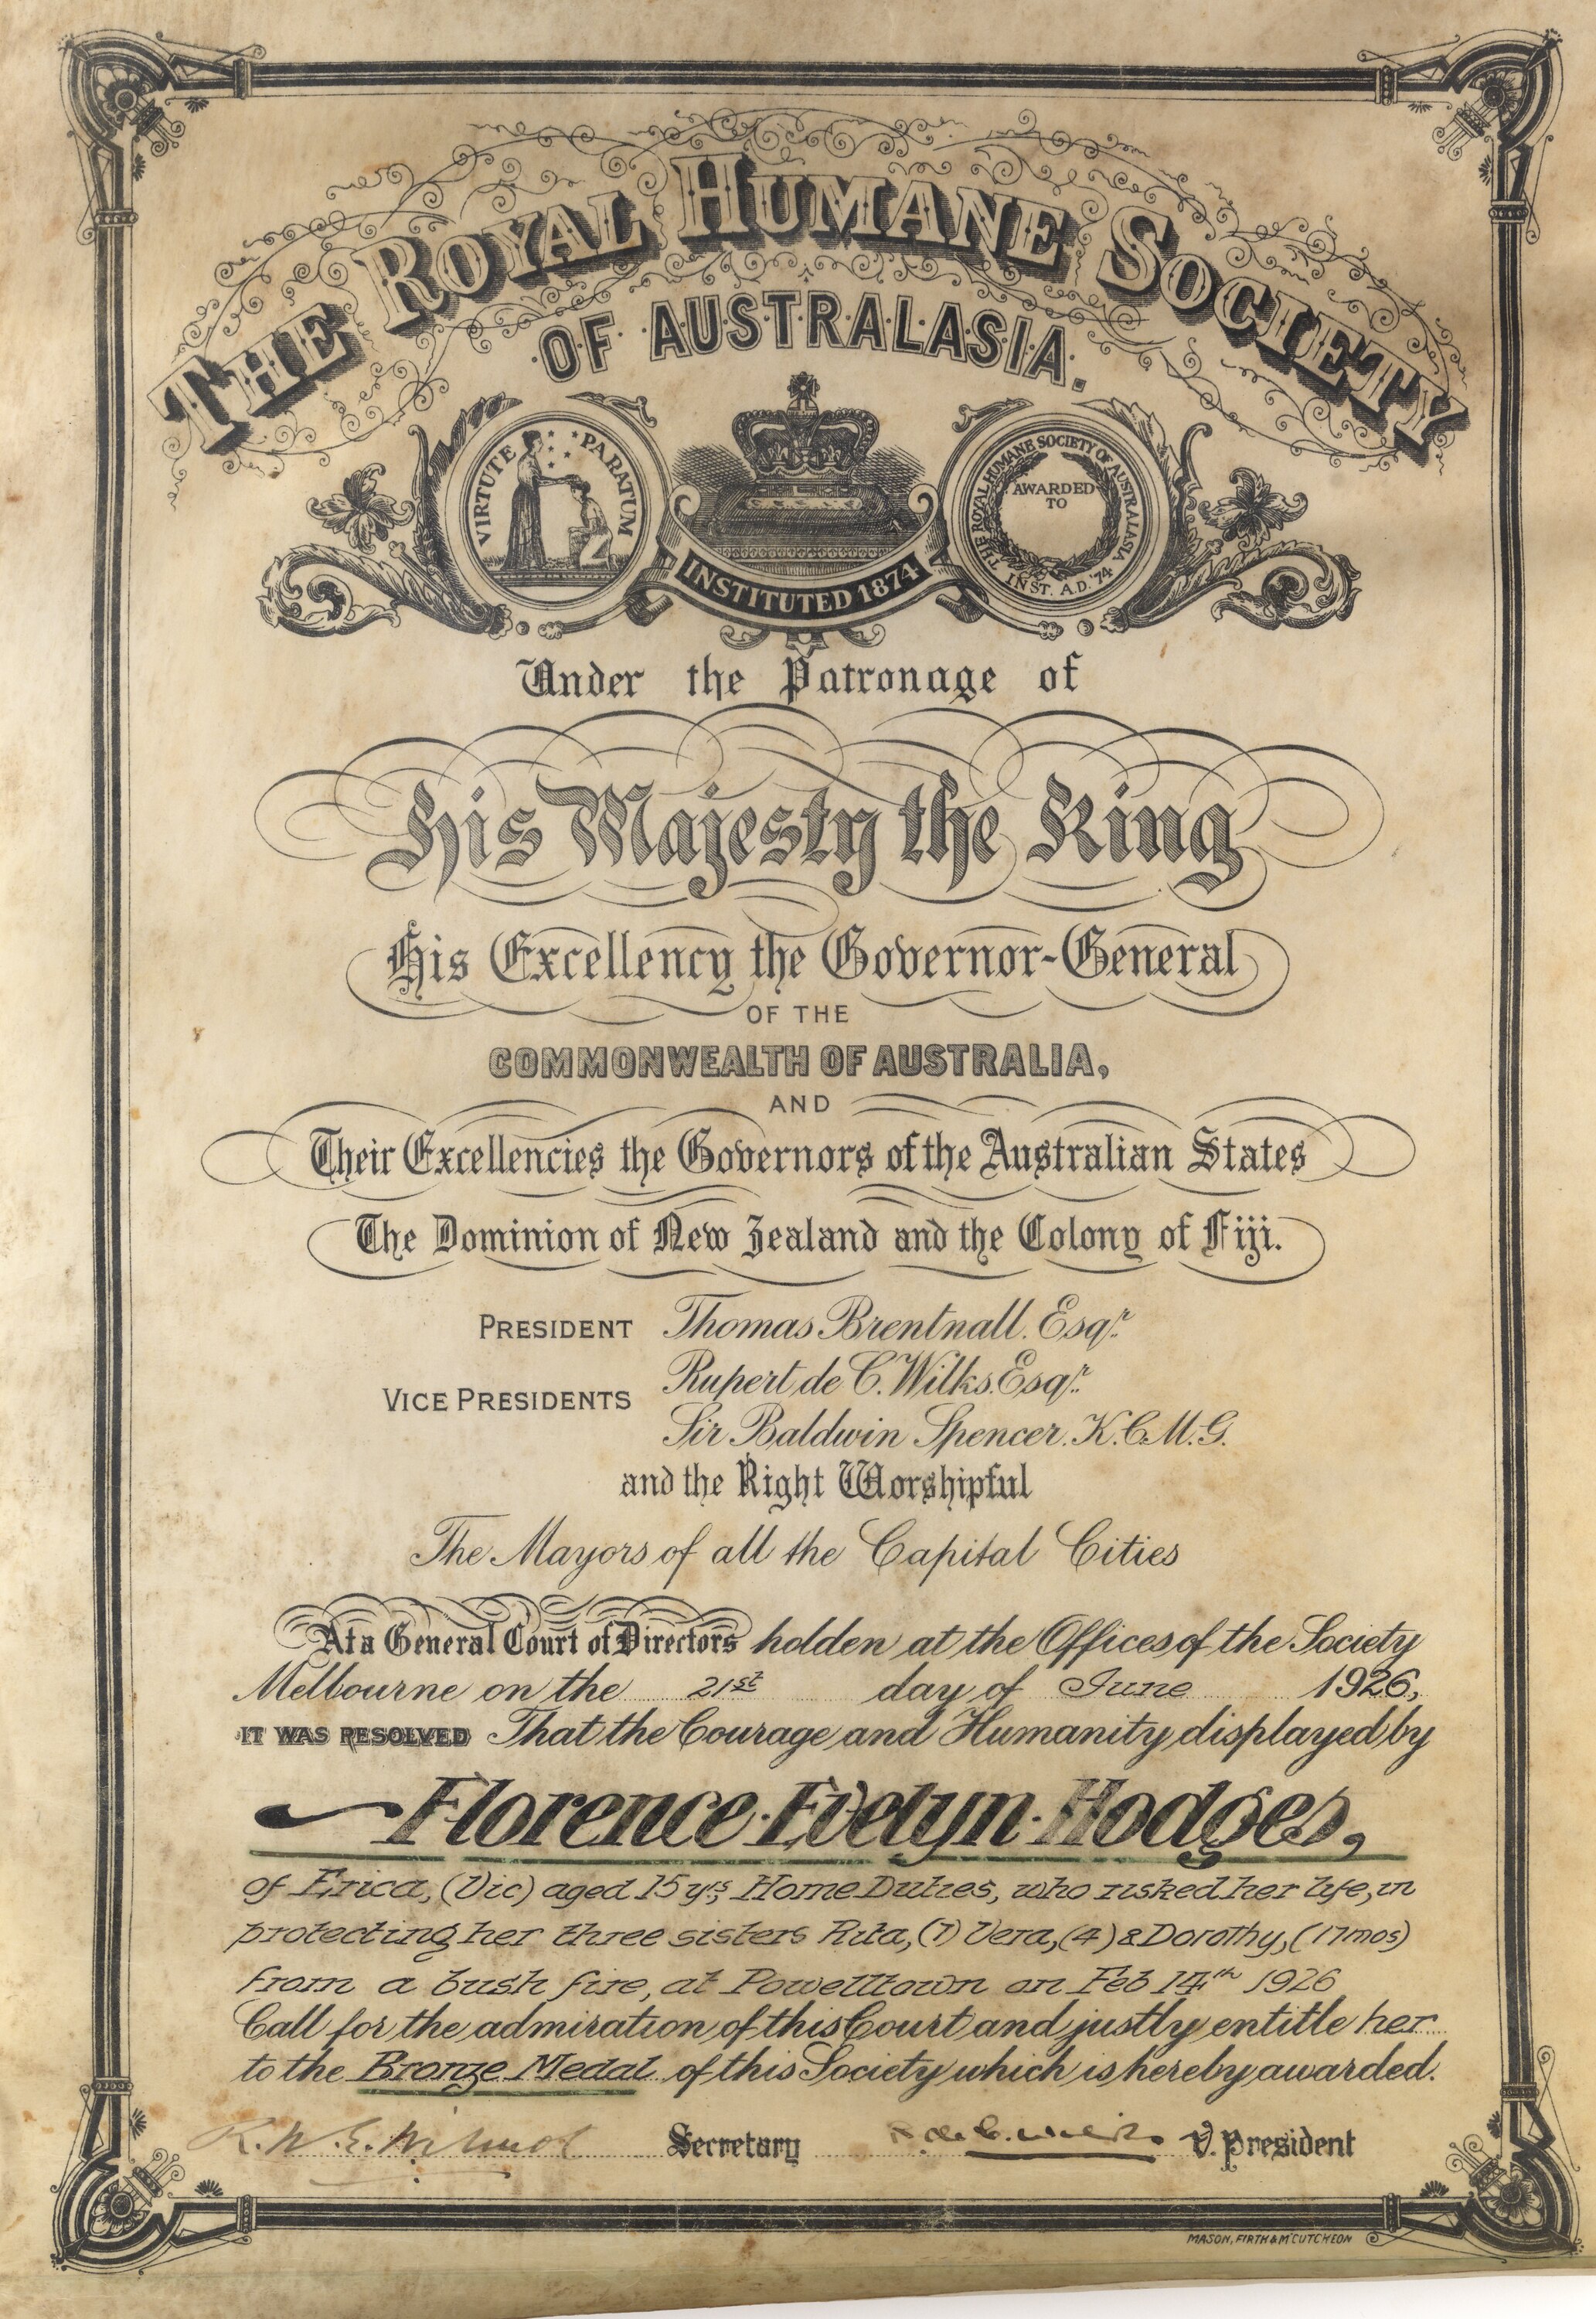 THE ROYAL HUMANE SOCIETY
OF AUSTRALASIA.
VIRTUTE PARATUM
INSTITUTED 1874
THE ROYAL HUMANE SOCIETY OF AUSTRALASIA
AWARDED
TO
INST. A.D. '74
Under the Patronage of
His Majesty the King
His Excellency the Governor-General
OF THE
COMMONWEALTH OF AUSTRALIA,
AND
Their Excellencies the Governors of the Australian States
The Dominion of New Zealand and the Colony of Fiji.
PRESIDENT Thomas Brentnall. Esqr.
VICE PRESIDENTS Rupert de C. Wilks. Esqr.
Sir Baldwin Spencer. K.C.M.G.
and the Right Worshipful
The Mayors of all the Capital Cities
At a General Court of Directors holden at the Offices of the Society
Melbourne on the 21st day of June 1926,
IT WAS RESOLVED That the Courage and Humanity displayed by
Florence Evelyn Hodges,
of Erica, (Vic) aged 15 yrs, Home Duties, who risked her life, in
protecting her three sisters Rita, (7) Vera, (4) & Dorothy, (17 mos)
from a bush fire, at Powelltown on Feb 14th 1926
Call for the admiration of this Court and justly entitle her
to the Bronze Medal of this Society which is hereby awarded.
R. W. E. Wilmot Secretary R de C. Wilks. V. President
MASON, FIRTH & McCUTCHEON